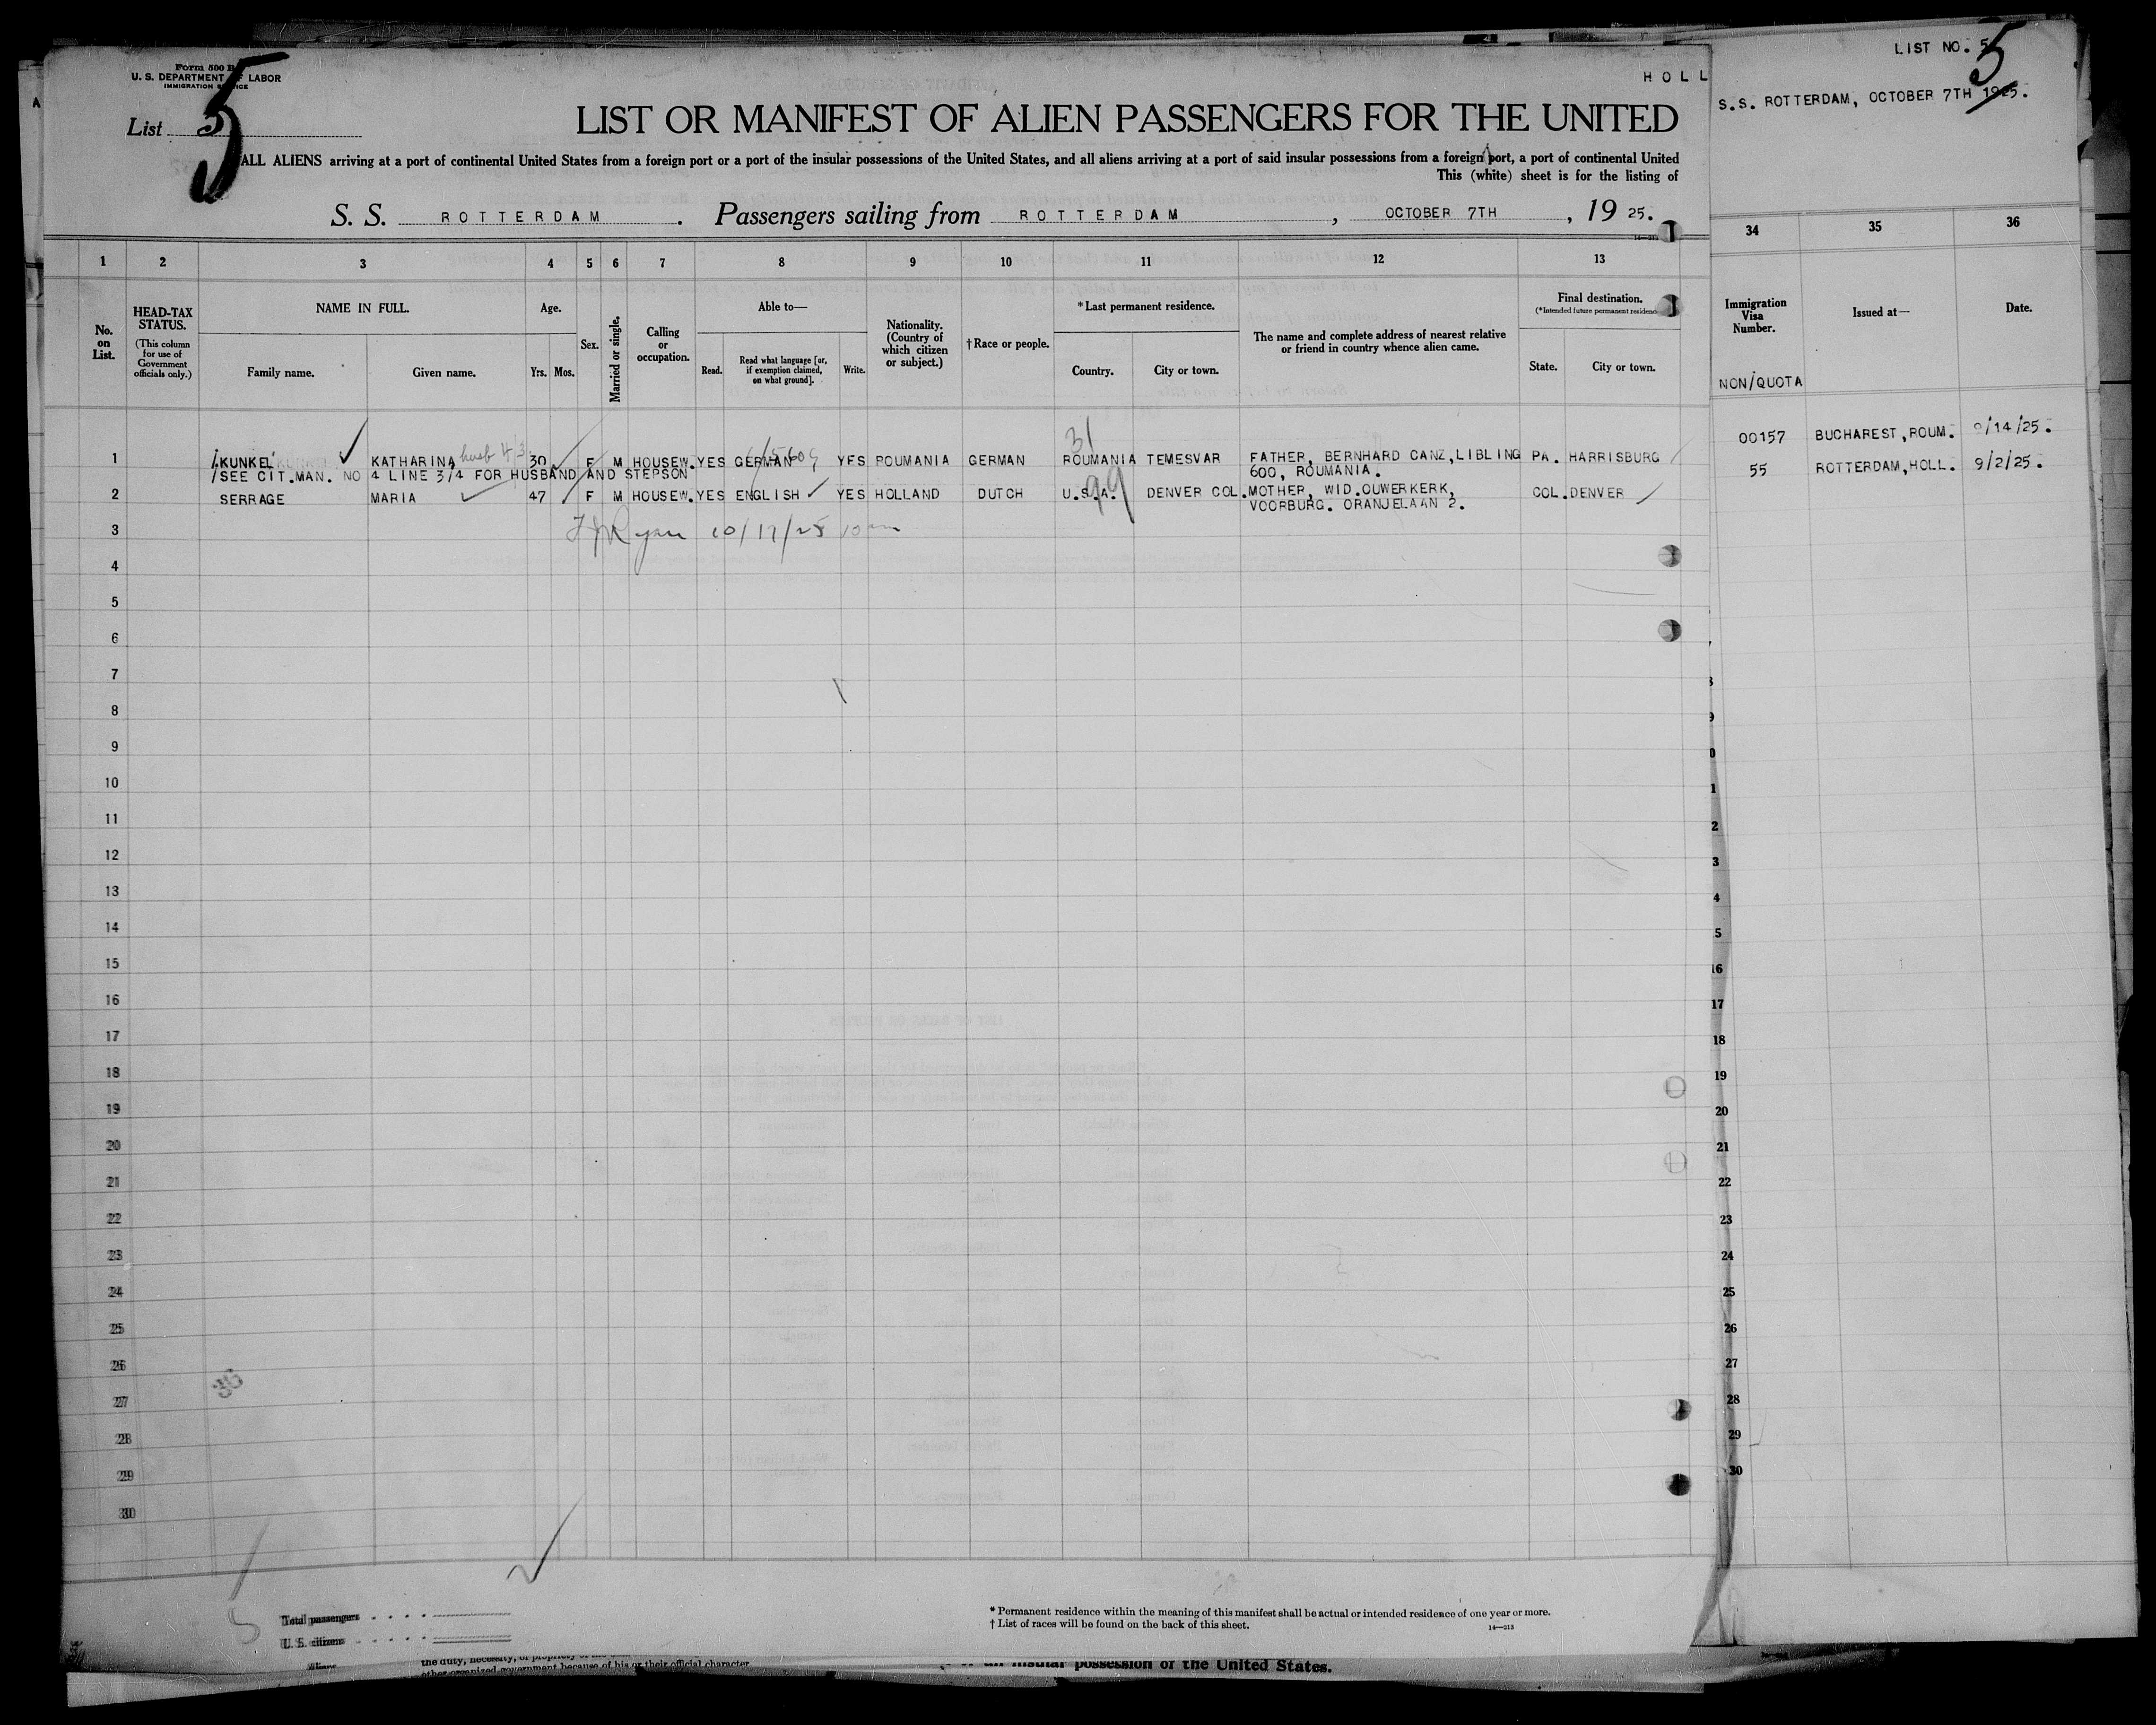 Form 500 B
U. S. DEPARTMENT OF LABOR
IMMIGRATION SERVICE
List 5
5
HOLL
LIST OR MANIFEST OF ALIEN PASSENGERS FOR THE UNITED
ALL ALIENS arriving at a port of continental United States from a foreign port or a port of the insular possessions of the United States, and all aliens arriving at a port of said insular possessions from a foreign port, a port of continental United
This (white) sheet is for the listing of
S. S. ROTTERDAM. Passengers sailing from ROTTERDAM, OCTOBER 7TH, 19 25.
LIST NO. 5
5
S.S. ROTTERDAM, OCTOBER 7TH 1925.
1 2 3 4 5 6 7 8 9 10 11 12 13
34 35 36
No. on List.
HEAD-TAX STATUS.
(This column for use of Government officials only.)
NAME IN FULL.
Family name. Given name.
Age.
Yrs. Mos.
Sex.
Married or single.
Calling or occupation.
Able to—
Read. Read what language [or, if exemption claimed, on what ground]. Write.
Nationality. (Country of which citizen or subject.)
†Race or people.
*Last permanent residence.
Country. City or town.
The name and complete address of nearest relative or friend in country whence alien came.
Final destination.
(*Intended future permanent residence
State. City or town.
Immigration Visa Number.
NON/QUOTA
Issued at—
Date.
1 KUNKEL KATHARINA 30 F M HOUSEW. YES GERMAN YES ROUMANIA GERMAN ROUMANIA TEMESVAR FATHER, BERNHARD CANZ, LIBLING PA. HARRISBURG
600, ROUMANIA.
/SEE CIT.MAN. NO 4 LINE 3/4 FOR HUSBAND AND STEPSON
31
2 SERRAGE MARIA 47 F M HOUSEW. YES ENGLISH YES HOLLAND DUTCH U.S.A. DENVER COL. MOTHER, WID.OUWERKERK, COL. DENVER
VOORBURG. ORANJELAAN 2.
99
00157 BUCHAREST, ROUM. 9/14/25.
55 ROTTERDAM, HOLL. 9/2/25.
Ryan 10/17/25
3
4
5
6
7
8
9
10
11
12
13
14
15
16
17
18
19
20
21
22
23
24
25
26
27
28
29
30
8
9
0
1
2
3
4
5
16
17
18
19
20
21
22
23
24
25
26
27
28
29
30
Total passengers
U. S. citizens
Aliens
* Permanent residence within the meaning of this manifest shall be actual or intended residence of one year or more.
† List of races will be found on the back of this sheet.
14—213
the duty, necessity, or propriety of
other organized government because of his or their official character
an insular possession of the United States.